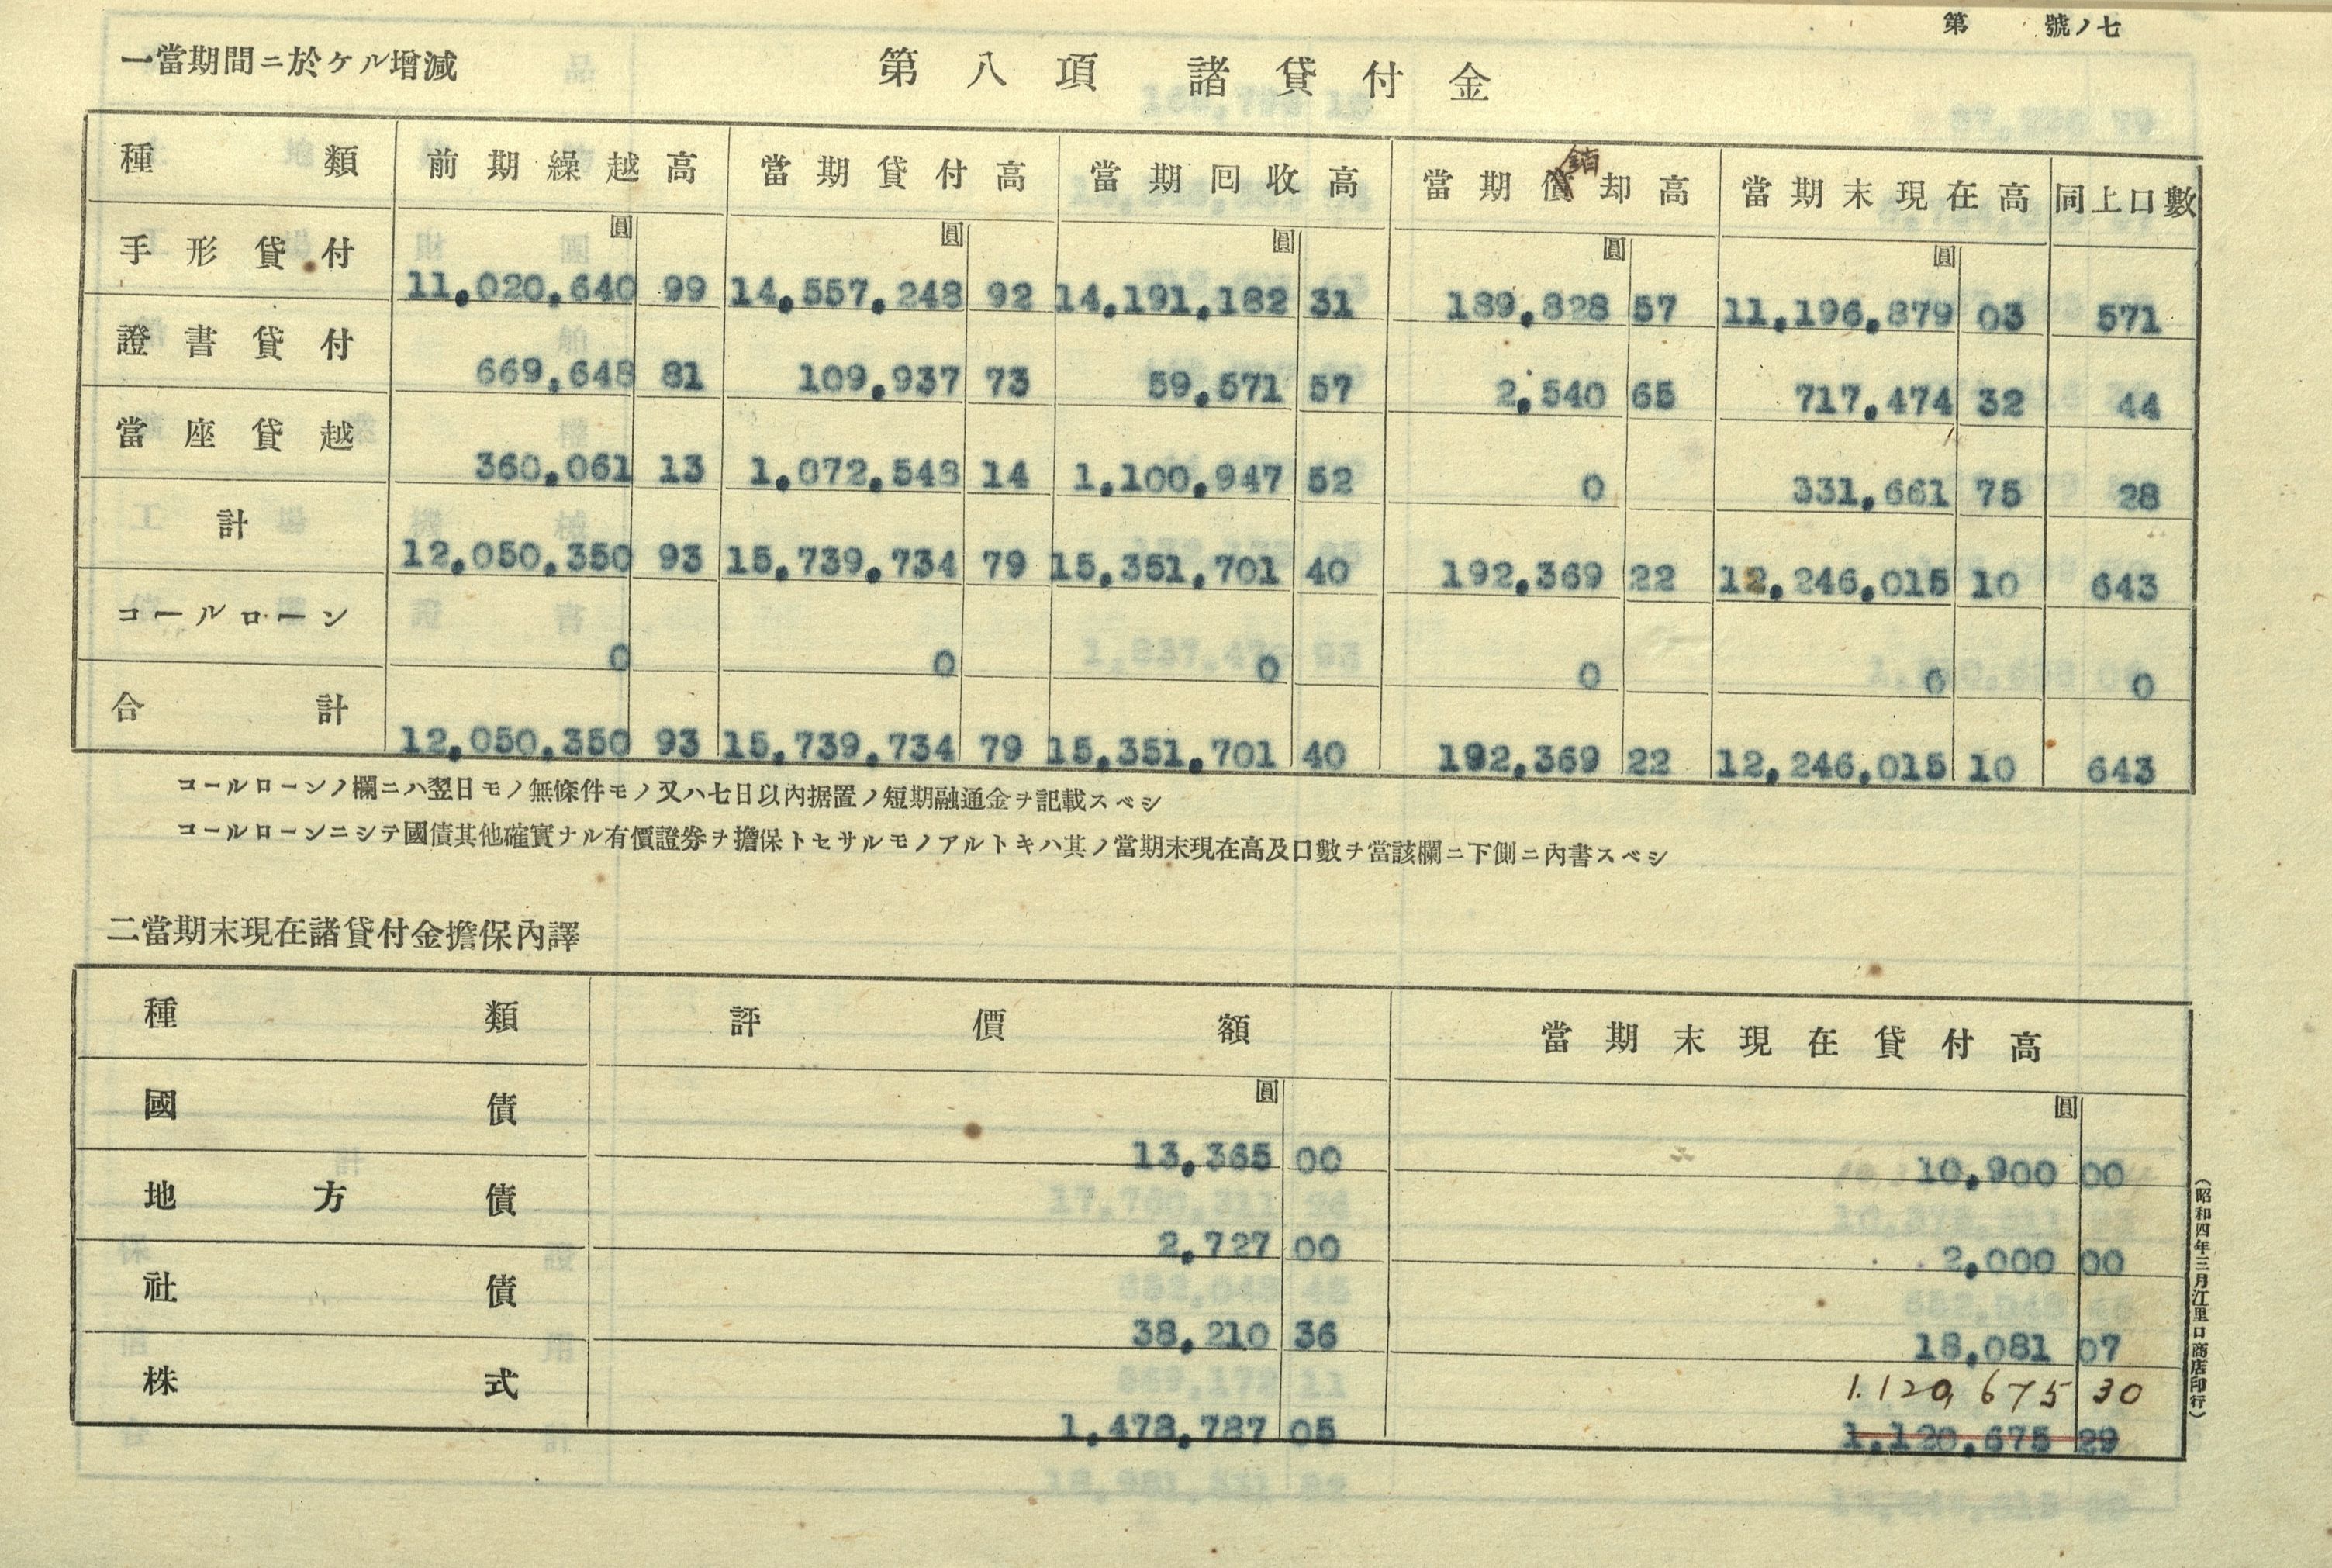 第　號ノ七
一當期間ニ於ケル增減　第八項　諸貸付金
種類　前期繰越高　當期貸付高　當期回收高　當期償却高　當期末現在高　同上口數
銷
圓　圓　圓　圓　圓
手形貸付　11,020,640 99　14,557,248 92　14,191,182 31　189,828 57　11,196,879 03　571
證書貸付　669,648 81　109,937 73　59,571 57　2,540 65　717,474 32　44
當座貸越　360,061 13　1,072,548 14　1,100,947 52　0　331,661 75　28
計　12,050,350 93　15,739,734 79　15,351,701 40　192,369 22　12,246,015 10　643
コールローン　0　0　0　0　0　0
合計　12,050,350 93　15,739,734 79　15,351,701 40　192,369 22　12,246,015 10　643
コールローンノ欄ニハ翌日モノ無條件モノ又ハ七日以內据置ノ短期融通金ヲ記載スベシ
コールローンニシテ國債其他確實ナル有價證券ヲ擔保トセサルモノアルトキハ其ノ當期末現在高及口數ヲ當該欄ニ下側ニ內書スベシ
二當期末現在諸貸付金擔保內譯
種類　評價額　當期末現在貸付高
圓　圓
國債　13,365 00　10,900 00
地方債　2,727 00　2,000 00
社債　38,210 36　18,081 07
1,120,675 30
株式　1,478,787 05　1,120,675 29
(昭和四年三月江里口商店印行)